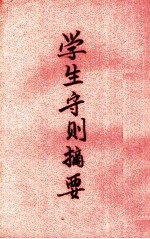 学生守则摘要